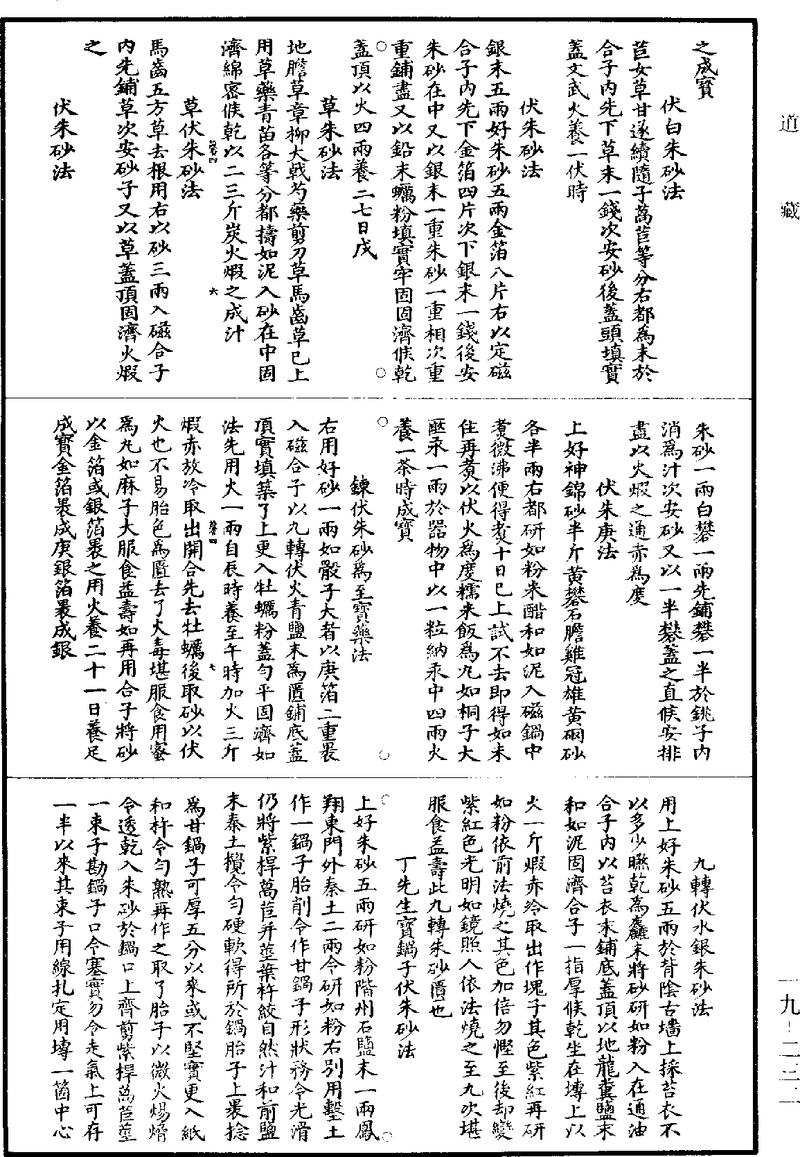 道藏
之成寶
伏白朱砂法
苣女草甘遂續隨子萵苣等分右都為末於
合子內先下草末一錢次安砂後蓋頭填實
蓋文武火養一伏時
伏朱砂法
銀末五兩好朱砂五兩金箔八片右以定磁
合子內先下金箔四片次下銀末一錢後安
朱砂在中又以銀末一重朱砂一重相次重
重鋪盡又以鉛末蠣粉填實牢固固濟候乾
蓋頂以火四兩養二七日成
草朱砂法
地膽草章柳大戟芍藥剪刀草馬齒草已上
用草藥青苗各等分都擣如泥入砂在中固
濟綿密候乾以二三斤炭火煆之成汁
卷四 六
草伏朱砂法
馬齒五方草去根用右以砂三兩入磁合子
內先鋪草次安砂子又以草蓋頂固濟火煆
之
伏朱砂法
朱砂一兩白礬一兩先鋪礬一半於銚子內
消為汁次安砂又以一半礬蓋之直候安排
盡以火煆之通赤為度
伏朱庚法
上好神錦砂半斤黃礬石膽雞冠雄黃硇砂
各半兩右都研如粉米醋和如泥入磁鍋中
煮微沸便得煮十日已上試不去即得如未
住再煮以伏火為度糯米飯為丸如桐子大
壓汞一兩於器物中以一粒納汞中四兩火
養一茶時成寶
鍊伏朱砂為至寶藥法
右用好砂一兩如骰子大者以庚箔二重裹
入磁合子以九轉伏火青鹽末為匱鋪底蓋
頂實填築了上更入牡蠣粉蓋勻平固濟如
法先用火一兩自辰時養至午時加火三斤
卷四 七
煆赤放冷取出開合先去牡蠣後取砂以伏
火也不易胎色為匱去了火毒堪服食用蜜
為丸如麻子大服食益壽如再用合子將砂
以金箔或銀箔裹之用火養二十一日養足
成寶金箔裹成庚銀箔裹成銀
九轉伏水銀朱砂法
用上好朱砂五兩於背陰古墻上採苔衣不
以多少曬乾為麤末將砂研如粉入在通油
合子內以苔衣末鋪底蓋頂以地龍糞鹽末
和如泥固濟合子一指厚候乾坐在塼上以
火一斤煆赤冷取出作塊子其色紫紅再研
如粉依前法燒之其色加倍勿慳至後却變
紫紅色光明如鏡照人依法燒之至九次堪
服食益壽此九轉朱砂匱也
丁先生寶鍋子伏朱砂法
上好朱砂五兩研如粉階州石鹽末一兩鳳
翔東門外秦土二兩令研如粉右別用墼土
作一鍋子胎削令作甘鍋子形狀務令光滑
仍將紫桿萵苣并莖葉杵絞自然汁和前鹽
末秦土攪令勻硬軟得所於鍋胎子上裹捻
為甘鍋子可厚五分以來或不堅實更入紙
和杵令勻熟再作之取了胎子以微火煬𤏡
令透乾入朱砂於鍋口上齊剪紫桿萵苣莖
一束子勘鍋子口令塞實勿令走氣上可存
一半以來其束子用線扎定用塼一箇中心
一九-二三二